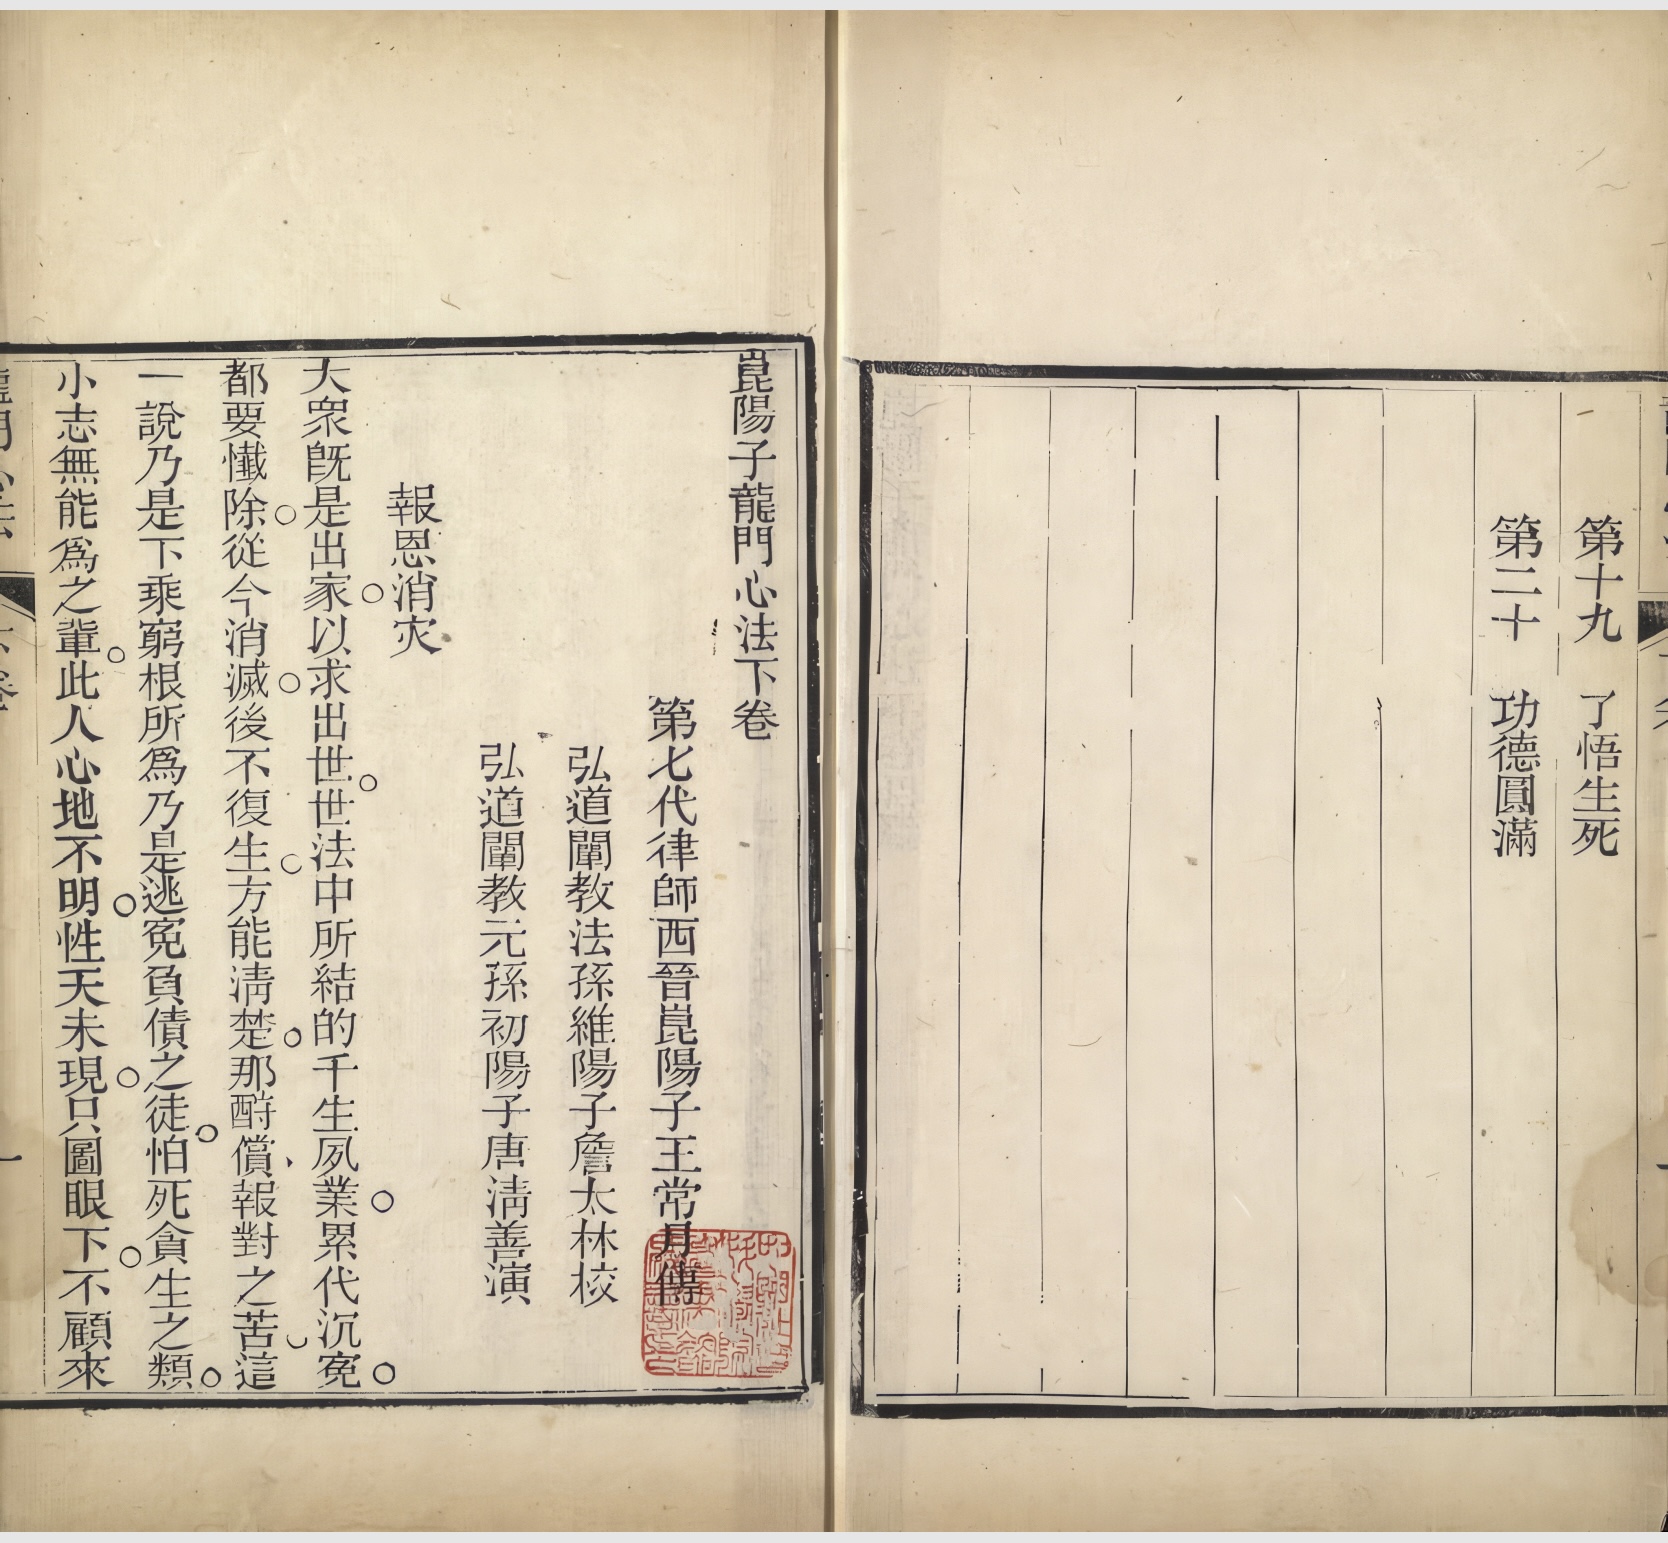 第十九　了悟生死
第二十　功德圓滿
崑陽子龍門心法下卷
第七代律師西晉崑陽子王常月傳
弘道闡教法孫維陽子詹太林校
弘道闡教元孫初陽子唐淸善演
報恩消灾
大衆旣是出家。以求出世。世法中所結的千生夙業。累代沉寃。
都要懴除。從今消滅。後不復生。方能淸楚。那酧償報對之苦。這
一說乃是下乘窮根所爲乃是逃寃負債之徒。怕死貪生之類。
小志無能爲之輩。此人心地不明。性天未現。只圖眼下。不顧來